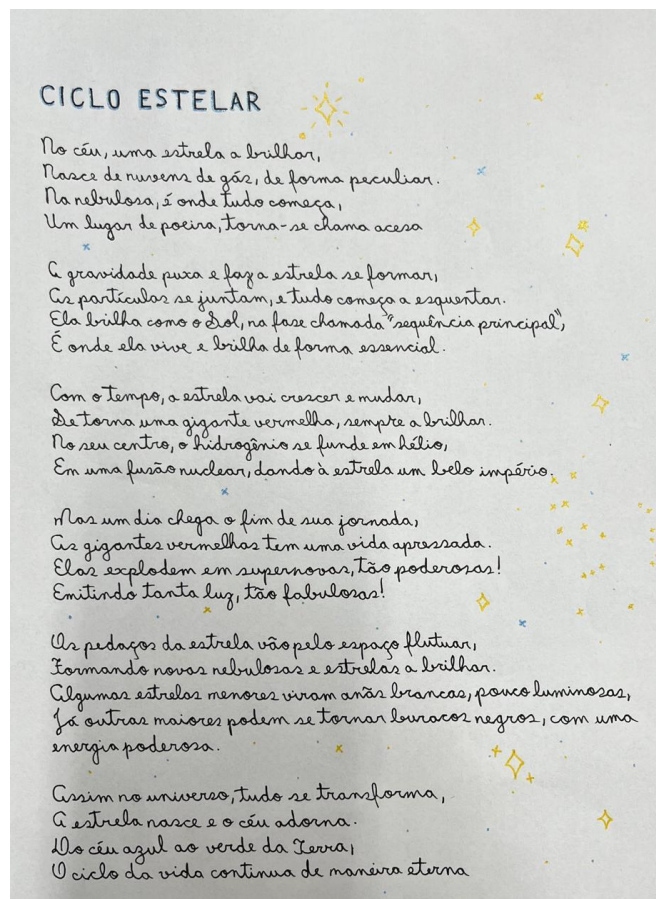 CICLO ESTELAR
No céu, uma estrela a brilhar,
Nasce de nuvens de gás, de forma peculiar.
Na nebulosa, é onde tudo começa,
Um lugar de poeira, torna-se chama acesa
A gravidade puxa e faz a estrela se formar,
As partículas se juntam, e tudo começa a esquentar.
Ela brilha como o Sol, na fase chamada "sequência principal",
É onde ela vive e brilha de forma essencial.
Com o tempo, a estrela vai crescer e mudar,
Se torna uma gigante vermelha, sempre a brilhar.
No seu centro, o hidrogênio se funde em hélio,
Em uma fusão nuclear, dando à estrela um belo império.
Mas um dia chega o fim de sua jornada,
As gigantes vermelhas tem uma vida apressada.
Elas explodem em supernovas, tão poderosas!
Emitindo tanta luz, tão fabulosas!
Os pedaços da estrela vão pelo espaço flutuar,
Formando novas nebulosas e estrelas a brilhar.
Algumas estrelas menores viram anãs brancas, pouco luminosas,
Já outras maiores podem se tornar buracos negros, com uma
energia poderosa.
Assim no universo, tudo se transforma,
A estrela nasce e o céu adorna.
Do céu azul ao verde da Terra,
O ciclo da vida continua de maneira eterna